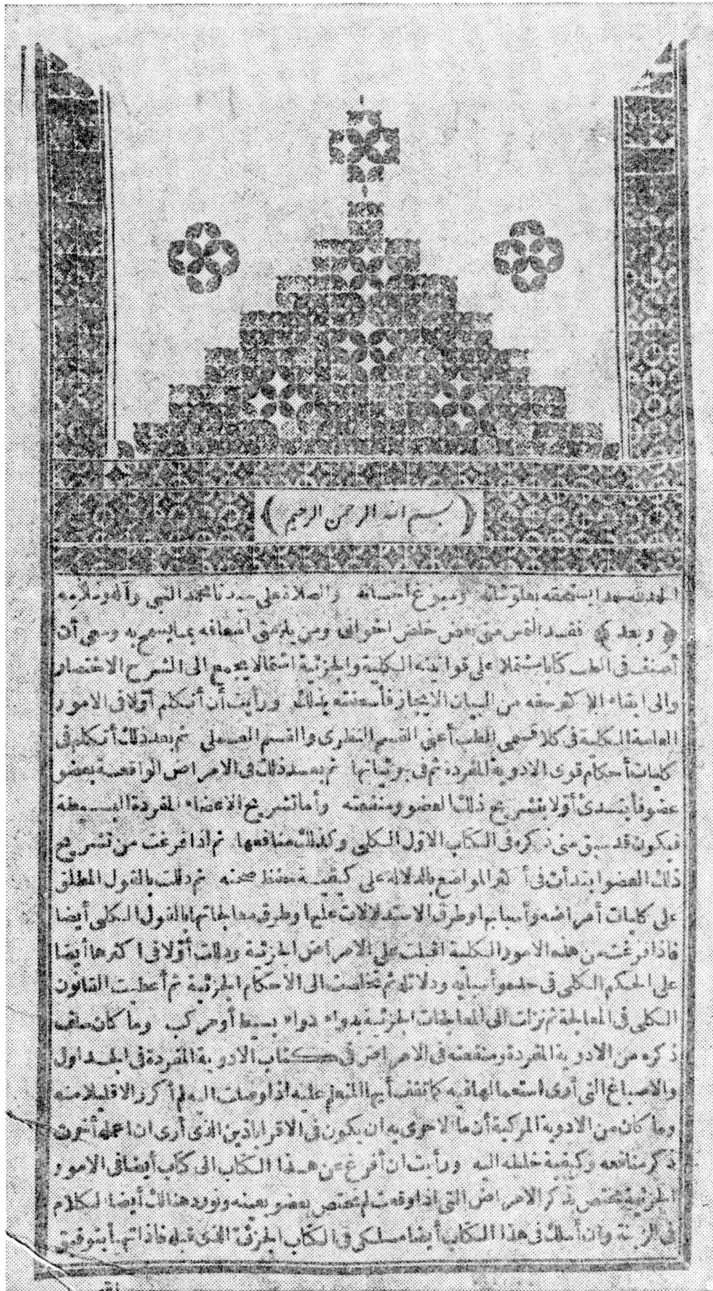 ﴿ بسم الله الرحمن الرحيم ﴾
الحمد لله حمدا يستحقه بعلو شانه وسبوغ احسانه والصلاة على سيدنا محمد النبي وآله وسلامه
﴿ وبعد ﴾ فقد التمس مني بعض خلص اخواني ومن يلزمني اسعافه بما يسمح به وسعى أن
أصنف في الطب كتابا مشتملا على قوانينه الكلية والجزئية اشتمالا يجمع الى الشرح الاختصار
والى ايفاء الاكثر حقه من البيان الايجاز فأسعفته بذلك ورأيت أن أتكلم أولا في الامور
العامة الكلية في كلا قسمي الطب أعني القسم النظرى والقسم العملي ثم بعد ذلك أتكلم في
كليات أحكام قوى الادوية المفردة ثم في جزئياتها ثم بعد ذلك في الامراض الواقعة بعضو
عضو فأبتدئ أولا بتشريح ذلك العضو ومنفعته وأما تشريح الاعضاء المفردة البسيطة
فيكون قد سبق مني ذكره في الكتاب الاول الكلي وكذلك منافعها ثم اذا فرغت من تشريح
ذلك العضو ابتدأت في أكثر المواضع بالدلالة على كيفية حفظ صحته ثم دللت بالقول المطلق
على كليات أمراضه وأسبابها وطرق الاستدلالات عليها وطرق معالجاتها بالقول الكلى أيضا
فاذا فرغت من هذه الامور الكلية اقبلت على الامراض الجزئية ودللت أولا في اكثرها أيضا
على الحكم الكلى في حده وأسبابه ودلائله ثم تخلصت الى الاحكام الجزئية ثم أعطيت القانون
الكلى في المعالجة ثم نزلت الى المعالجات الجزئية بدواء دواء بسيط أو مركب وما كان سلف
ذكره من الادوية المفردة ومنفعته في الامراض في كتاب الادوية المفردة في الجداول
والاصباغ التى أرى استعمالها فيه كما تقف أيها المتعلم عليه اذا وصلت اليه لم أكرر الا قليلا منه
وما كان من الادوية المركبة أن ما الاحرى به ان يكون في الاقراباذين الذى أرى ان اعمله أخرت
ذكر منافعه وكيفية خلطه اليه ورأيت ان أفرغ عن هذا الكتاب الى كتاب أيضا في الامور
الجزئية مختص بذكر الامراض التى اذا وقعت لم تختص بعضو بعينه ونورد هنالك أيضا الكلام
في الزينة وان أسلك في هذا الكتاب أيضا مسلكى في الكتاب الجزئى الذى قبله فاذا تهيأ بتوفيق